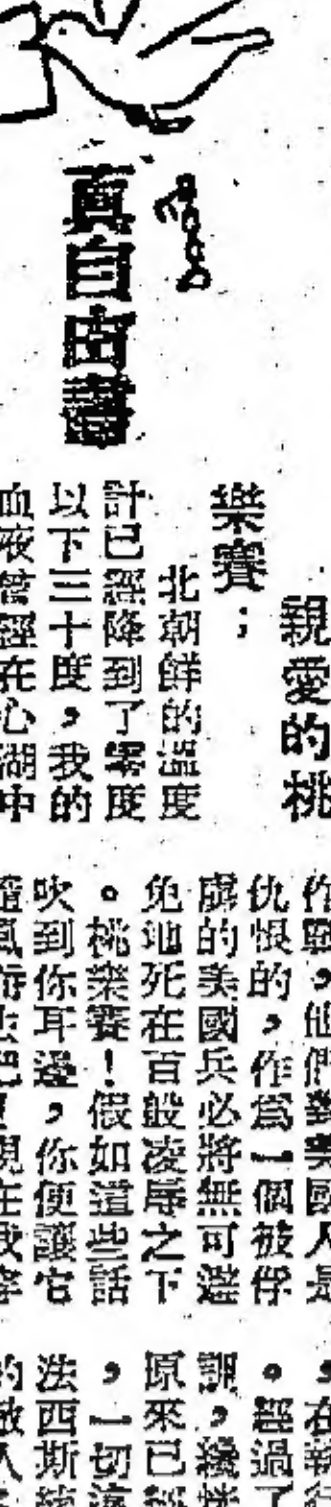 真自由書
親愛的桃
樂賽；
北朝鮮的溫度
計已經降到了零度
以下三十度，我的
血液曾經在心湖中
作戰，他們對美國人是
仇恨的，作爲一個被俘
虜的美國兵必將無可避
免地死在百般凌辱之下
。桃樂賽！假如這些話
吹到你耳邊，你便讓它
隨風
現在我
，在新
。經過了
訓，纔
原來已經
，一切
法西斯
的敵人